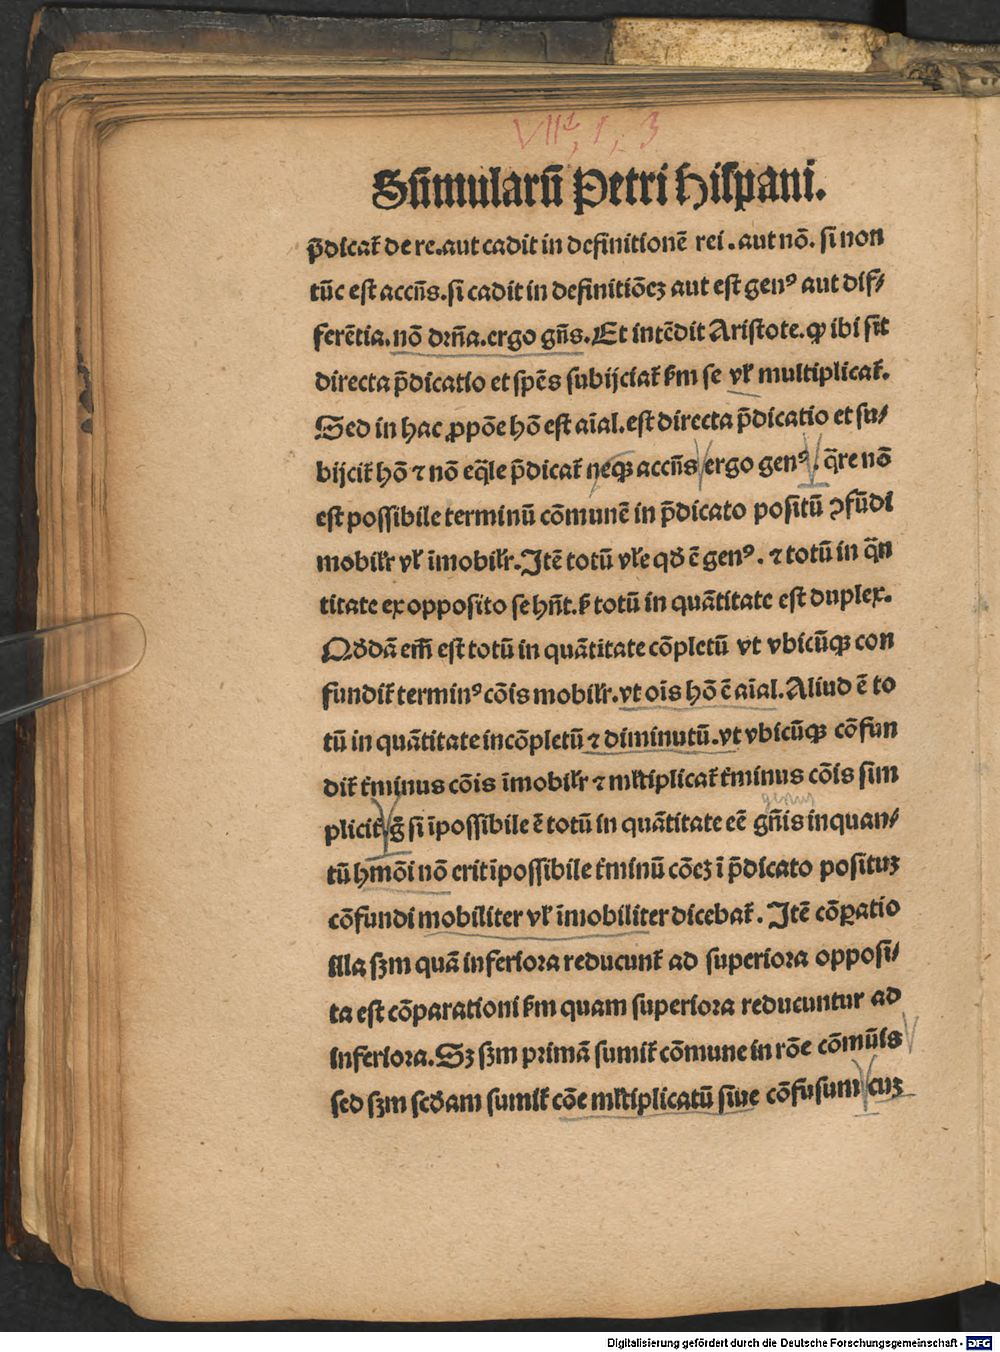 VII¹, 1, 3
Sūmularū Petri Hispani.
p̄dicat᷑ de re. aut cadit in definitionē rei. aut nō. si non
tūc est accn̄s. si cadit in definitiōeꝫ aut est genꝰ aut dif⸗
ferētia. nō dr̄na. ergo gn̄s. Et intēdit Aristote. ꝙ ibi sit
directa p̄dicatio et spēs subijciat᷑ ẜm se vꝉ multiplicat᷑.
Sed in hac ꝓpōe hō est aīal. est directa p̄dicatio et su⸗
bijcit᷑ hō ⁊ nō eq̄le p̄dicat᷑ neqꝫ accn̄s ergo genꝰ. q̄re nō
est possibile terminū cōmunē in p̄dicato positū ꝯfūdi
mobilr̄ vꝉ īmobilr̄. Itē totū vꝉe qđ ē genꝰ. ⁊ totū in q̄n
titate ex opposito se hn̄t. ẜ totū in quātitate est duplex.
Qđdā em̄ est totū in quātitate cōpletū vt vbicūqꝫ con
fundit᷑ terminꝰ cōis mobilr̄. vt oīs hō ē aīal. Aliud ē to
tū in quātitate incōpletū ⁊ diminutū. vt vbicūqꝫ cōfun
dit᷑ t᷑minus cōis īmobilr̄ ⁊ mꝉtiplicat᷑ t᷑minus cōis sim
genus
plicit᷑ g̊ si īpossibile ē totū in quātitate eē gn̄is inquan⸗
tū hmōi nō erit īpossibile t᷑minū cōeꝫ ī p̄dicato posituꝫ
cōfundi mobiliter vꝉ īmobiliter dicebat᷑. Itē cōꝑatio
illa sꝫm quā inferiora reducunt᷑ ad superiora opposi⸗
ta est cōparationi ẜm quam superiora reducuntur ad
inferiora. Sꝫ sꝫm primā sumit᷑ cōmune in rōe cōmūis
sed sꝫm scđam sumit᷑ cōe mꝉtiplicatū siue cōfusum cuꝫ
Digitalisierung gefördert durch die Deutsche Forschungsgemeinschaft - DFG